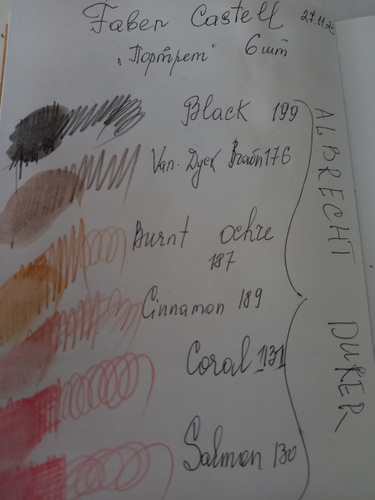 Faber Castell 27.11.
„Портрет" 6 шт
Black 199
Van-Dyck Braün 176
Burnt ochre
187
Cinnamon 189
Coral 131
Salmon 130
ALBRECHT
DURER